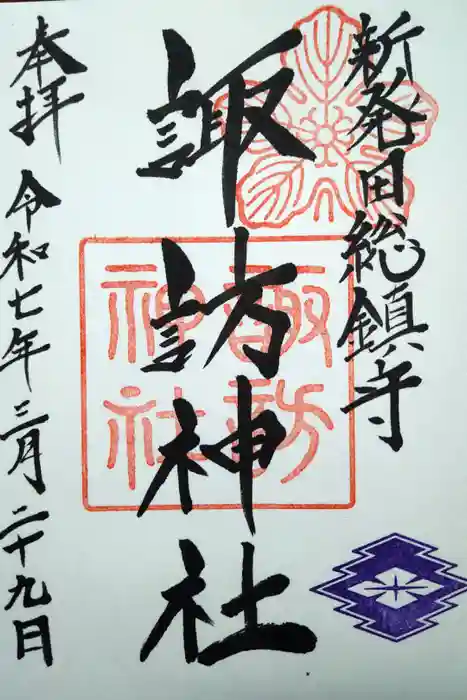 新発田総鎮守
諏訪神社
諏訪
神社
本拝
令和七年三月二十九日